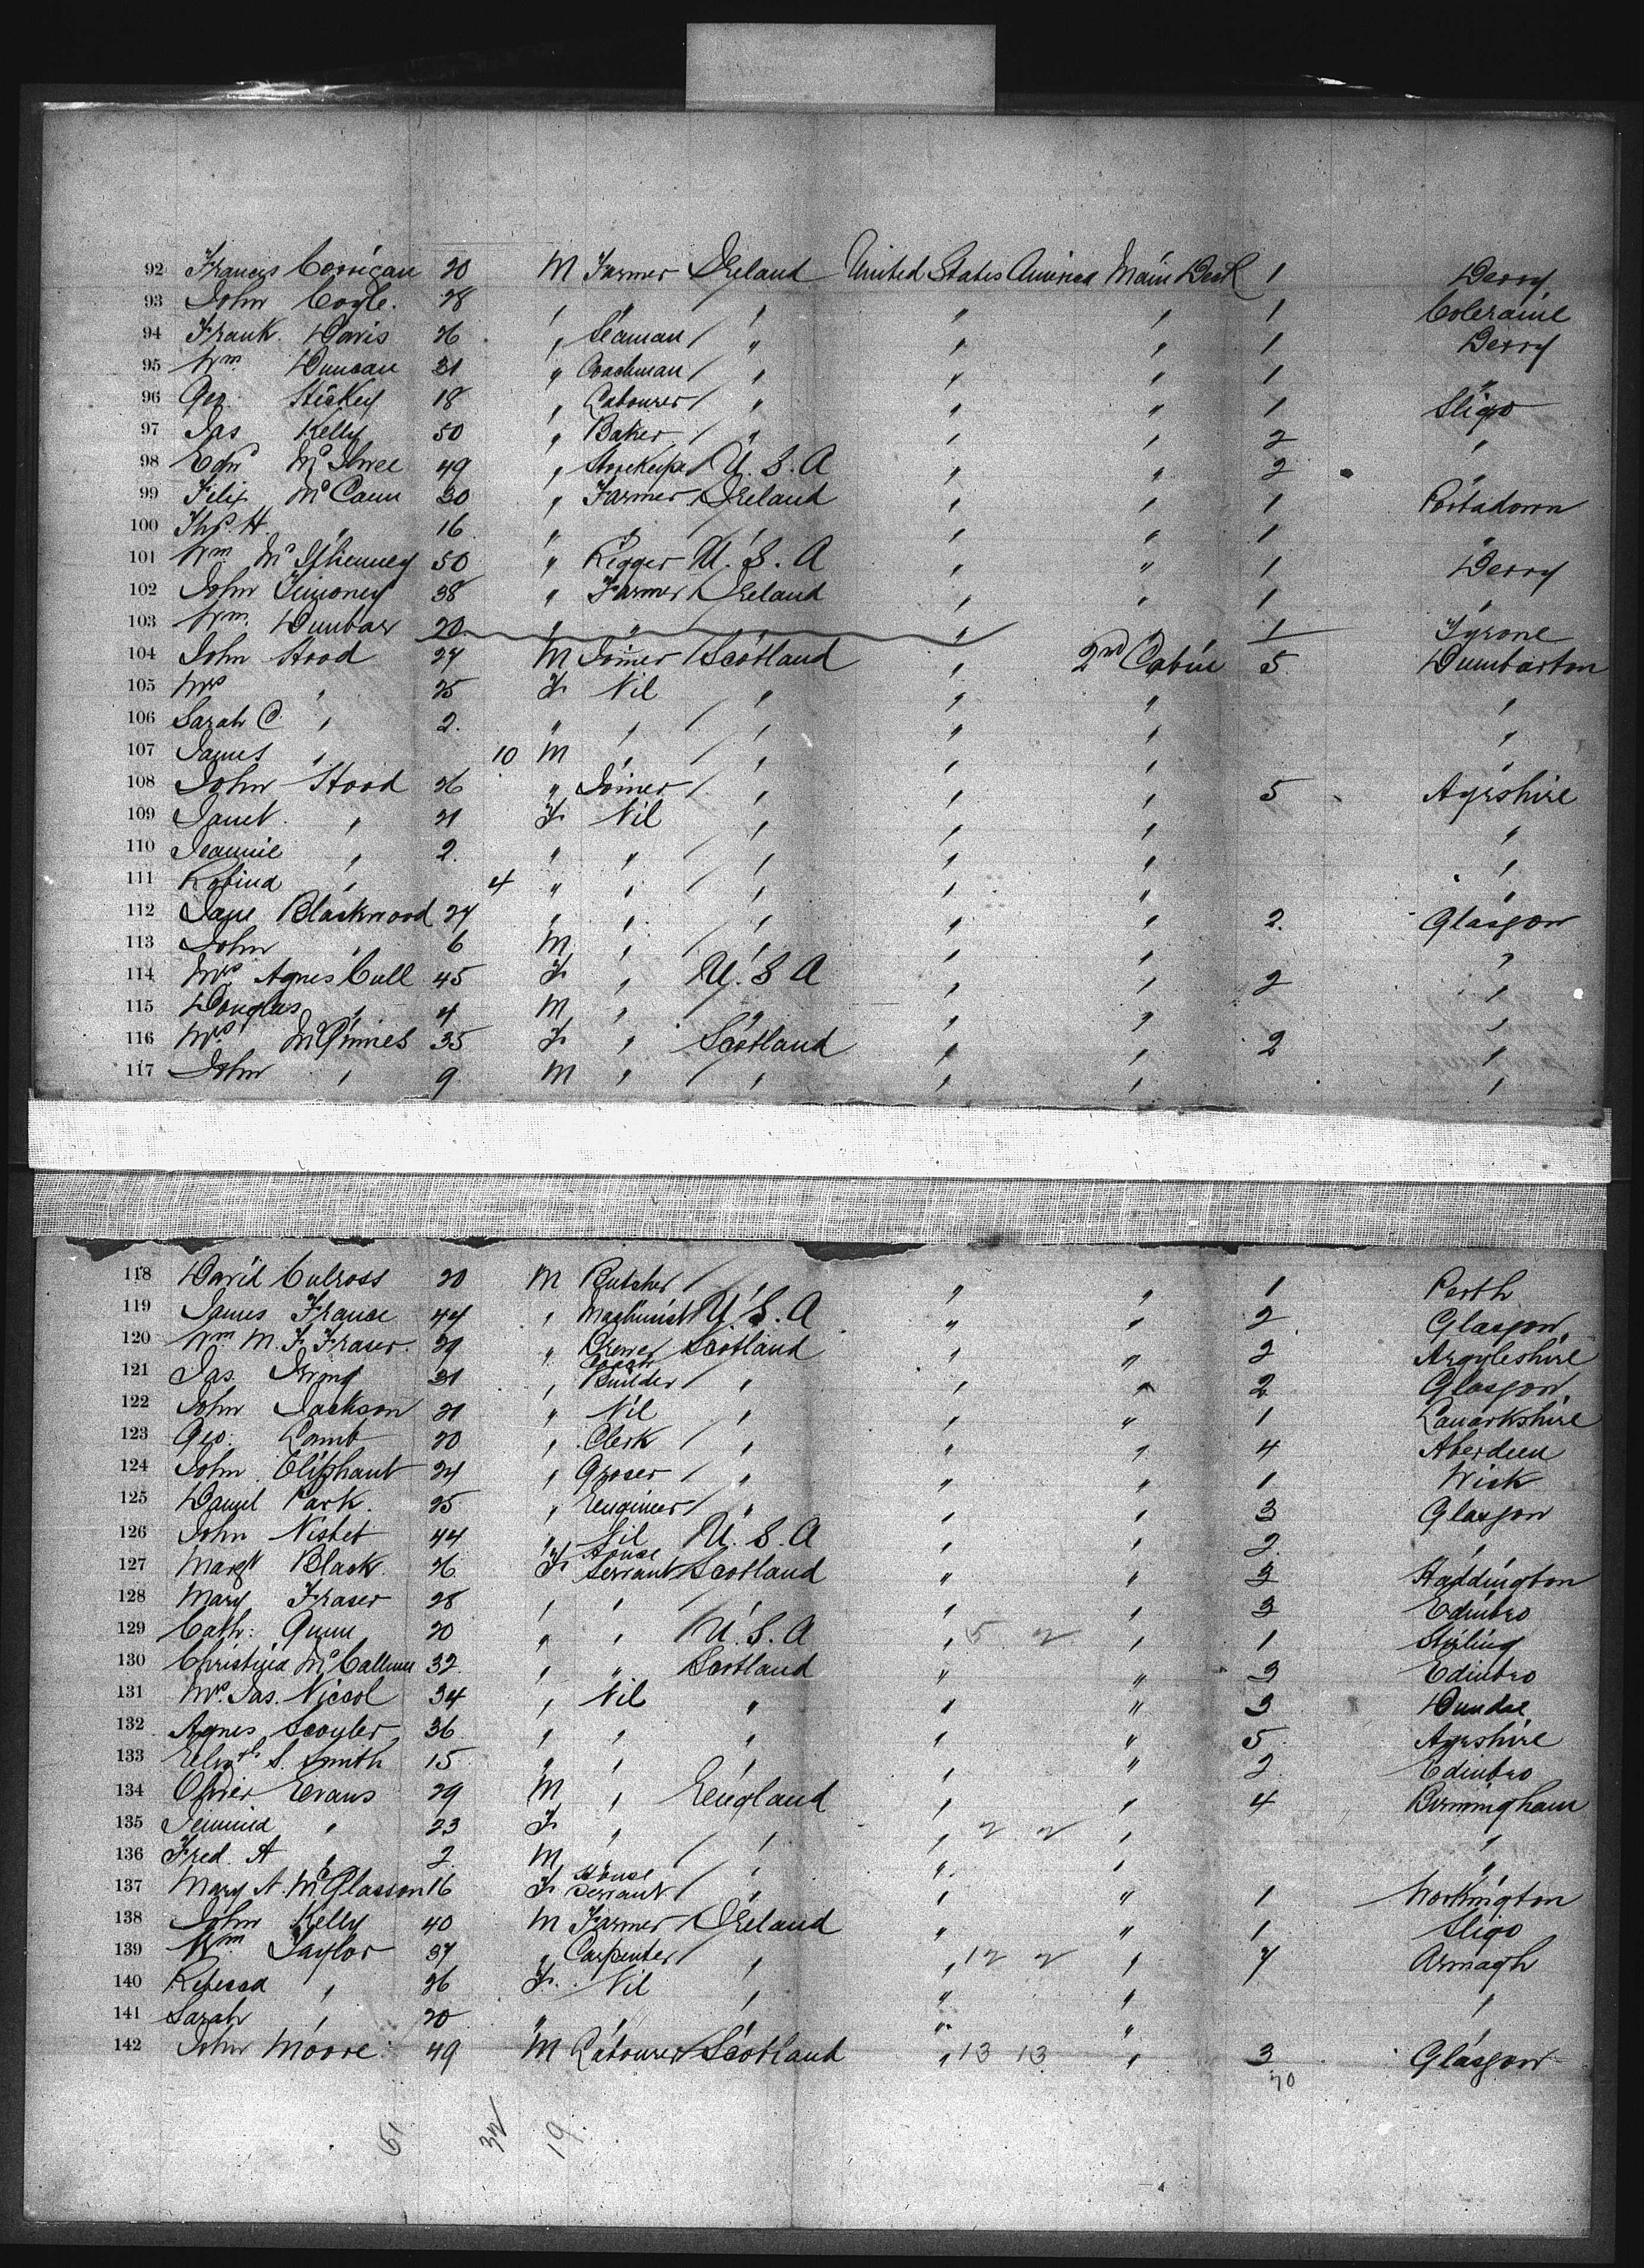 92 Francis Corrigan 20 M Farmer Ireland United States America Main Deck 1 Derry
93 John Coyle. 28 " " " " " 1 Coleraine
94 Frank Davis 26 " Seaman " " " 1 Derry
95 Wm Duncan 31 " Coachman " " " 1 "
96 Geo. Hickey 18 " Labourer " " " 1 Sligo
97 Jas Kelly 50 " Baker " " " 2 "
98 Edwd 49 " U.S.A " " 2 "
99 Felix McCann 30 " Farmer Ireland " " 1 Portadown
100 Thos. H. " 16 " " " " " 1 "
101 Wm 50 " Rigger U.S.A " " 1 Derry
102 John Timoney 38 " Farmer Ireland " " 1 "
103 Wm. Dunbar 20 " " " " 1 Tyrone
104 John Hood 27 M Joiner Scotland " 2nd Cabin 5 Dumbarton
105 Mrs " 25 F Nil " " " "
106 Sarah C. " 2. " " " " " "
107 James " 10 M " " " " "
108 John Hood 26 " Joiner " " " 5 Ayrshire
109 Janet " 21 F Nil " " " "
110 Jeannie " 2. " " " " " "
111 Robina " 4 " " " " " "
112 Jane Blackwood 24 " " " " " 2. Glasgow
113 John " 6 M " " " " "
114 Mrs Agnes Cull 45 F " U.S A " " 2 "
115 Douglas " 4 M " " " " "
116 Mrs. McGinnes 35 F " Scotland " " 2 "
117 John " 9 M " " " " "
118 David Culross 20 M Butcher " " " 1 Perth
119 James France 44 " Machinist U.S.A " " 2 Glasgow
120 Wm M. F. Fraser. 29 " Scotland " " 2 Argyleshire
121 Jas. Irving 31 " Coach Builder " " " 2 Glasgow
122 John Jackson 21 " Nil " " " 1 Lanarkshire
123 Geo: Lamb 20 " Clerk " " " 4 Aberdeen
124 John Oliphant 24 " Groser " " " 1 Wick
125 Daniel Park. 25 " Engineer " " " 3 Glasgow
126 John Nisbet 44 " Nil U.S.A " " 2. "
127 Margt Black. 26 F House Servant Scotland " " 3 Haddington
128 Mary Fraser 28 " " " " " 3 Edinbro
129 Cath: Gunn 20 " " U.S.A " 5 2 " 1 Stirling
130 Christina McCallum 32. " " Scotland " " 3 Edinbro
131 Mrs. Jas. Nicol 34 " Nil " " " 3 Dundee
132 Agnes Scouler 36 " " " " " 5 Ayrshire
133 Elizth S. Smith 15 " " " " " 2. Edinbro
134 Oliver Evans 29 M " England " " 4 Birmingham
135 Jemima " 23 F " " " 2 2 " "
136 Fred. A " 2. M " " " " "
137 Mary A. McGlasson 16 F House Servant " " " 1 Workington
138 John Kelly 40 M Farmer Ireland " " 1 Sligo
139 Wm Taylor 37 " Carpenter " " 12 2 " 7 Armagh
140 Rebecca " 26 F. Nil " " " "
141 Sarah " 20 " " " " " "
142 John Moore 49 M Labourer Scotland " 13 13 " 3 Glasgow
70
51 32 19.